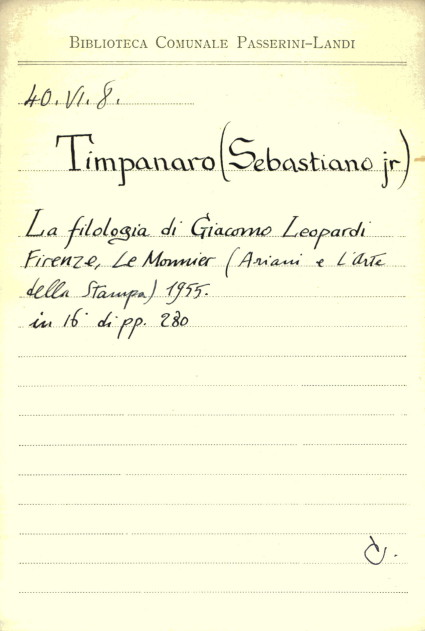 BIBLIOTECA COMUNALE PASSERINI-LANDI
40. VI. 8.
Timpanaro (Sebastiano jr)
La filologia di Giacomo Leopardi
Firenze, Le Monnier (Ariani e L'Arte
della Stampa) 1955.
in 16° di pp. 280